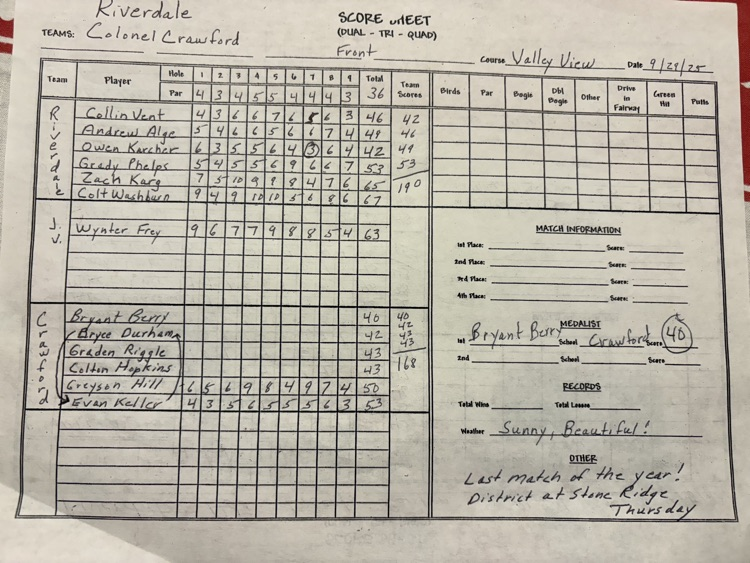 Riverdale
TEAMS: Colonel Crawford
SCORE SHEET
(DUAL - TRI - QUAD)
Front
Course Valley View Date 9/29/25
Team Player Hole 1 2 3 4 5 6 7 8 9 Total Team Scores Birds Par Bogie Dbl Bogie Other Drive in Fairway Green Hit Putts
Par 4 3 4 5 5 4 4 4 3 36
Riverdale
Collin Vent 4 3 6 6 7 6 5 6 3 46 42
Andrew Alge 5 4 6 6 5 6 6 7 4 49 46
Owen Karcher 6 3 5 5 6 4 3 6 4 42 49
Grady Phelps 5 4 5 5 6 9 6 6 7 53 53
Zach Karg 7 5 10 9 9 8 4 7 6 65 190
Colt Washburn 9 4 9 10 10 5 6 8 6 67
J.V.
Wynter Frey 9 6 7 7 9 8 8 5 4 63
Crawford
Bryant Berry 40 40
Bryce Durham 42 42
Graden Riggle 43 43
Colton Hopkins 43 43
168
Greyson Hill 6 5 6 9 8 4 9 7 4 50
Evan Keller 4 3 5 6 5 5 5 6 3 53
MATCH INFORMATION
1st Place: Score:
2nd Place: Score:
3rd Place: Score:
4th Place: Score:
MEDALIST
1st Bryant Berry School Crawford Score 40
2nd School Score
RECORDS
Total Wins Total Losses
Weather Sunny, Beautiful!
OTHER
Last match of the year!
District at Stone Ridge
Thursday